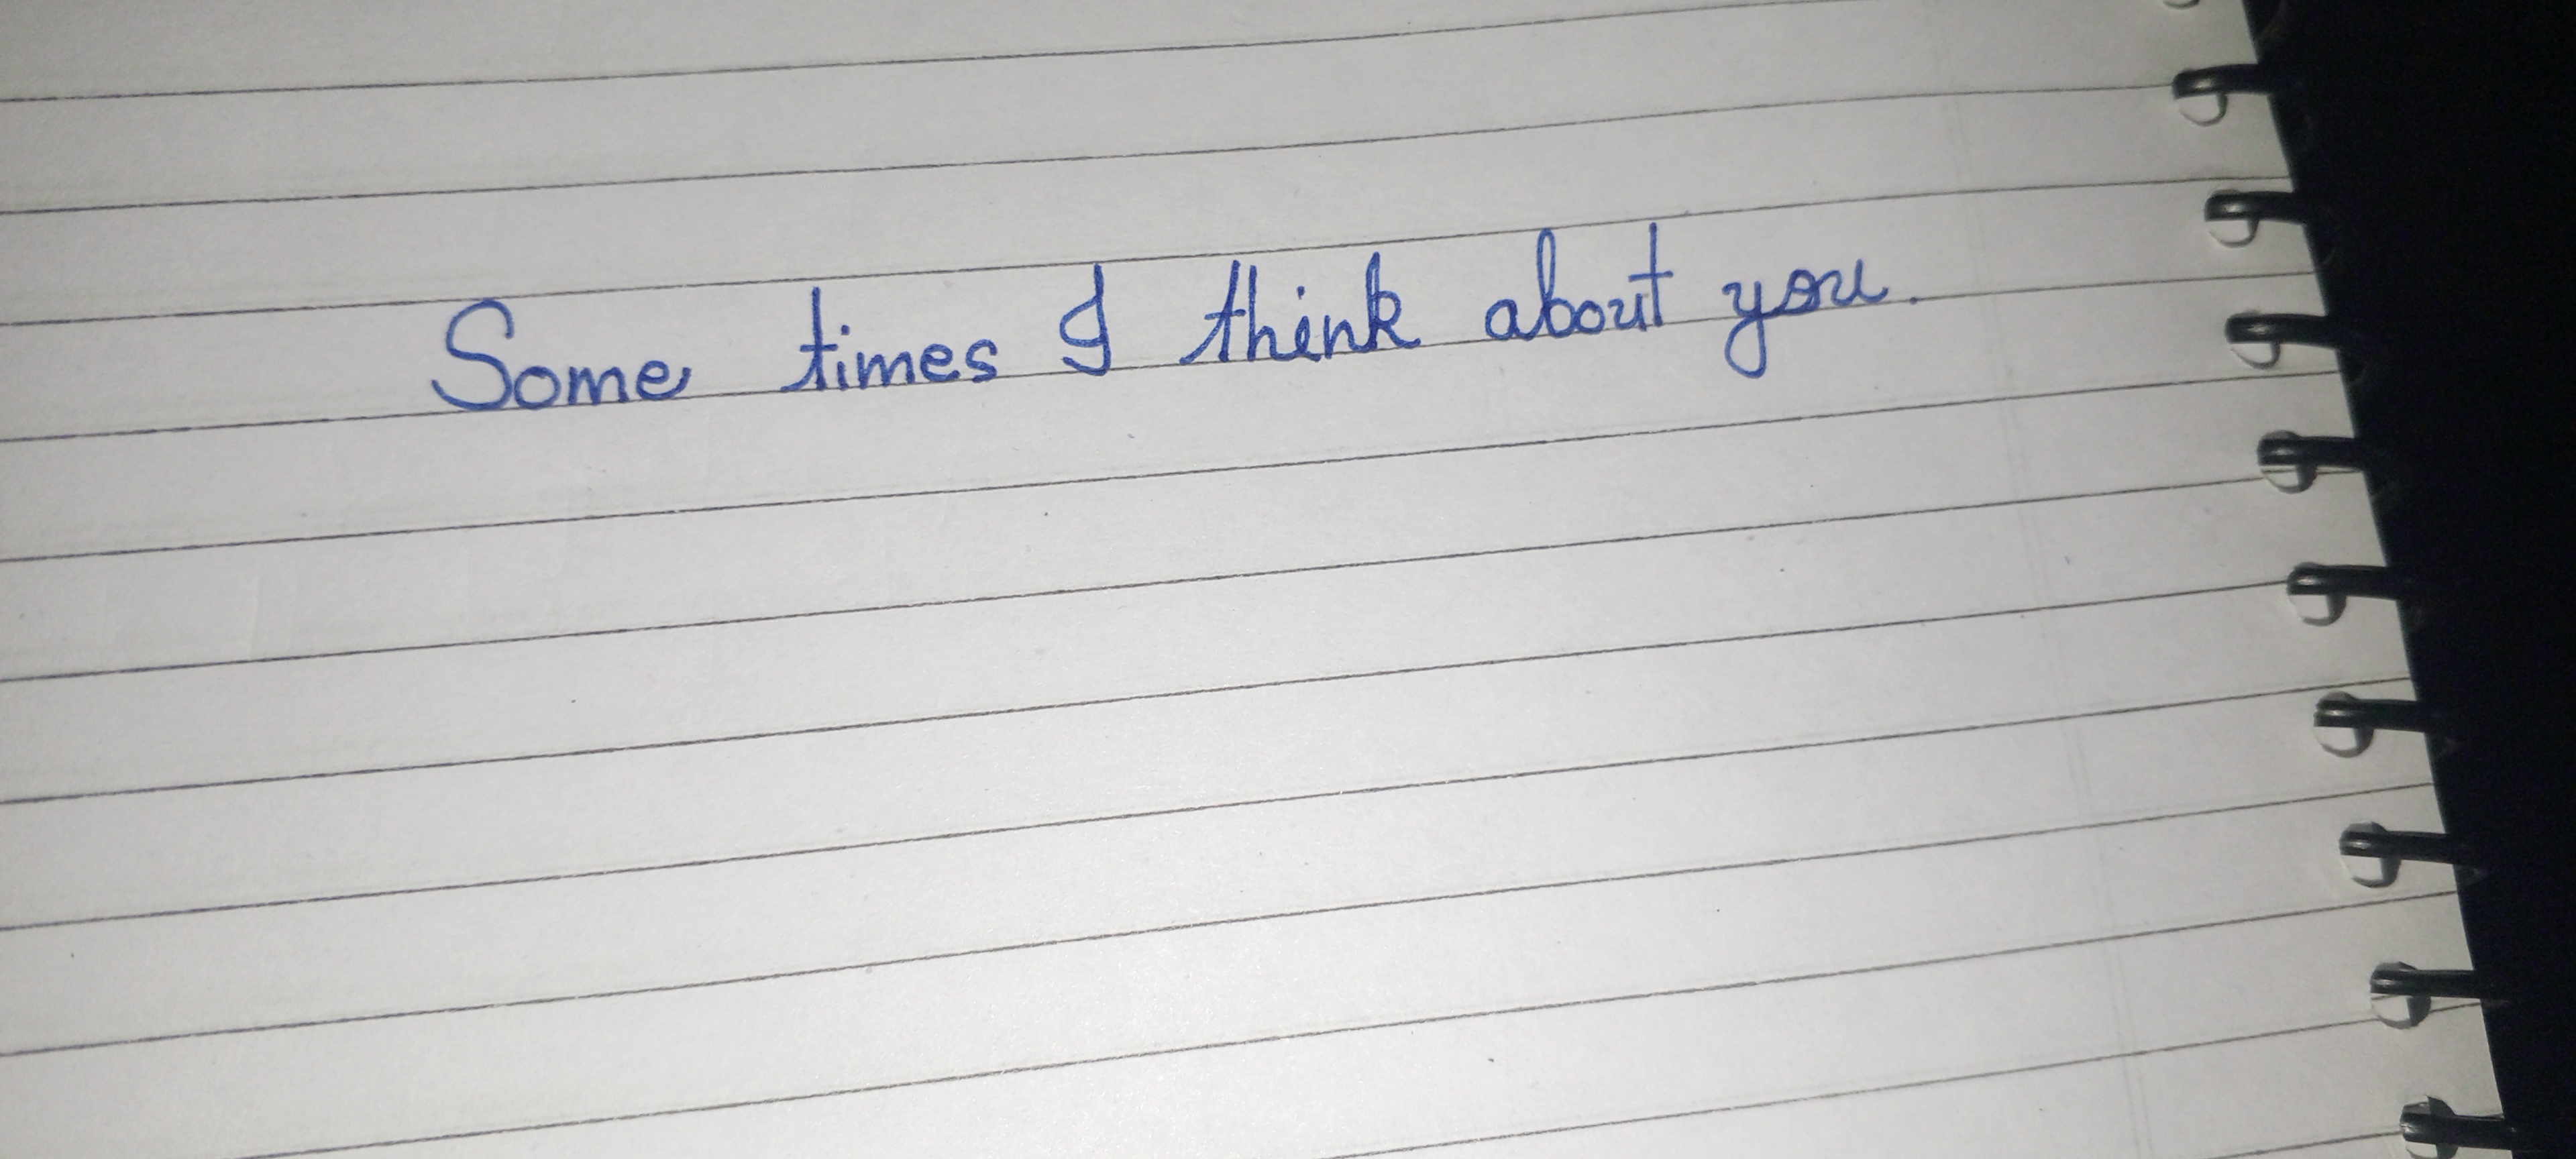 Some times I think about you.